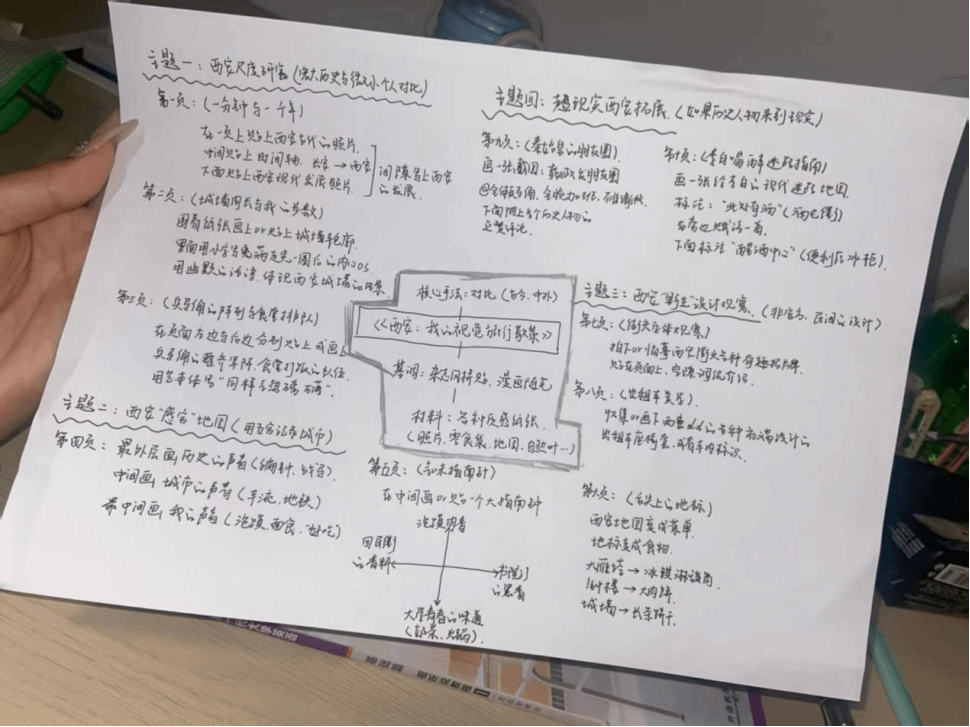 主题一：西安尺度研究（宏大历史与微小个人对比）
第一页：（一分钟与一千年）
在一页上贴上西安古代的照片
中间贴上时间轴，长安→西安
下面贴上西安现代发展照片.
间隙写上西安
的发展.
第二页：（城墙周长与我的步数）
用着纸张画上or贴上城墙轮廓.
里面用小字写完一圈后的内心os.
用幽默的话语，体现西安城墙的
第三页：（兵马俑的阵列与食堂排队）
在页面左边与右边分别贴上或画上
兵马俑的军阵，食堂打饭的队伍
用艺术体写“同样
主题二：西安“感官”地图（用五官记存城市）
第四页：最外层画历史的声音（编钟、
中间画城市的声音（车流、地铁）
最中间画我的声音（泡馍、西食、“好吃）
主题四：超现实西安拓展.（如果历史人物来到现实）
第九页：（秦始皇的朋友圈）
画一张截图：嬴政发朋友圈
@全体兵俑，
下面附上各个历史人物的
点赞评论
第十页：（李白喝醉迷路指南）
画一张给李白的现代迷路地图.
标注：“此处有酒”（酒吧街）
下面标注“醒酒中心”（便利店冰柜）.
核心手法：对比（古今、中外）
《西安：我的视觉旅行散集》
基调：杂志风拼贴、漫画随笔
材料：各种质感纸张
（照片、零食袋、地图、自然叶…）
主题三：西安“野生”设计观察.（非官方、民间的设计）
第七页：（街头字体观察）
拍下or临摹西安街头各种有趣招牌
贴在页面上，
第八页：（出租车美学）
收集or画下西安
出租车座椅套，或者车内标识.
第五页：（气味指南针）
在中间画or贴一个大指南针
泡馍肉香
回民街
的香料
书院门
的墨香
大学青春的味道
（奶茶、火锅）.
第六页：（舌尖上的地标）
西安地图变成菜单.
地标变成食物.
大雁塔→冰镇淋
钟楼→大肉饼.
城墙→长条饼干